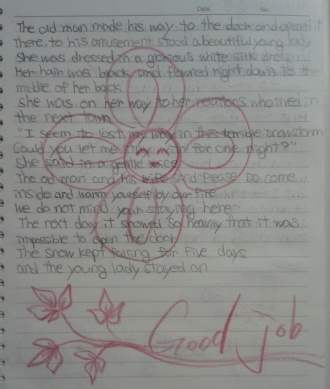 Date No
The old man made his way to the dock and opened it
There, to his amusement stood a beautiful young lady
She was dressed in a glorious white silk and
her hair was black and flowed right down to the
middle of her back
she was on her way to her relations who lived in
the next town
"I seem to lost my way in this terrible snowstorm
Could you let me stay for one night?"
She said in a gentle voice
The old man and his wife said Please Do come
inside and warm yourself by our fire
We do not mind your staying here"
The next day it showed so heavy that it was
impossible to open the door
The snow kept falling for five days
and the young lady stayed on
Good Job